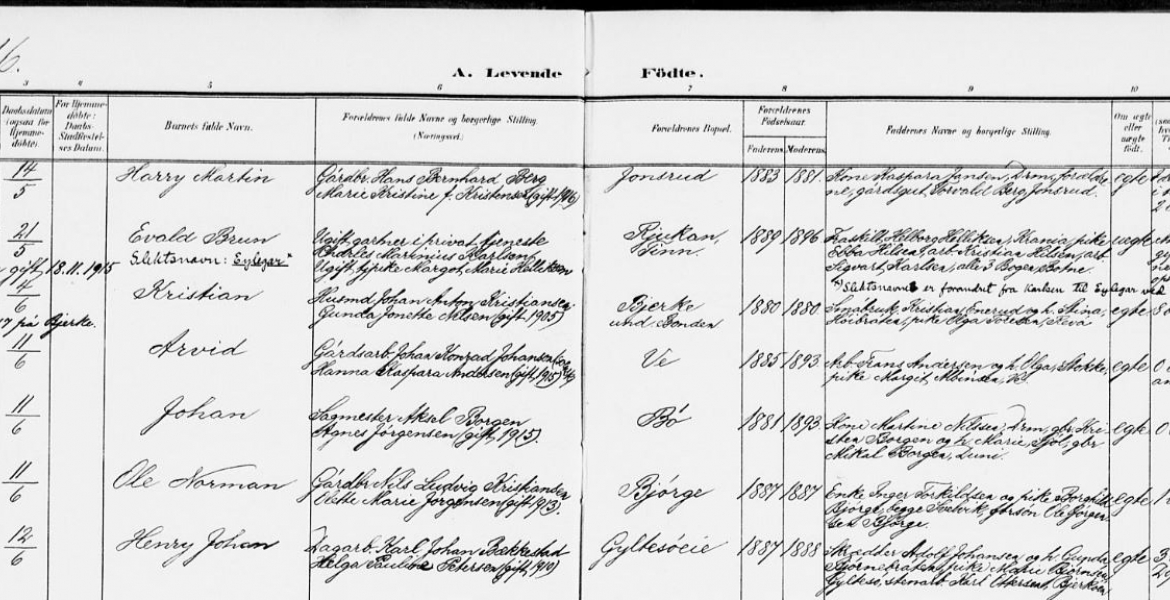 16.
A. Levende Födte.
3 4 5 6 7 8 9 10
Daabsdatum (ogsaa for Hjemmedöbte)
For Hjemmedöbte: Daabs-Stadfæstelses Datum.
Barnets fulde Navn.
Forældrenes fulde Navne og borgerlige Stilling.
(Næringsvei.)
Forældrenes Bopæl.
Forældrenes Fødselsaar.
Faderens. Moderens.
Fadderenes Navne og borgerlige Stilling.
Om ægte eller uægte födt.
14/5 Harry Martin
Gårdbr. Hans Bernhard Berg
Marie Kristine f. Kristensen (gift 1916)
Jonsrud 1883 1881.
Kone Kaspara Jansen, Drm, foreldrene, gårdsgut Torvald Berg, Jonsrud.
egte
21/5 Evald Brun
Slektsnavn: Sylegar
gift 18.11.1915
Ugift gartner i privat tjeneste
Charles Marinius Karlsen,
Ugift tj.pike Margot Marie Helleksen
Rjukan, Tinn. 1889 1896
Ebba Hilsen, arb. Kristian Hilsen, arb.
Sigvart Karlsen, alle 3 Bogen, Botne.
uegte
x) Slektsnavnet er forandret fra Karlsen til Sylegar ved
4/6 Kristian
på Bjerke.
Husmd. Johan Anton Kristiansen
Gunda Jonette Nilsen (gift 1905)
Bjerke und. Bonden 1880 1880.
Småbruk. Kristian Enerud og h. Stina,
egte
11/6 Arvid
Gårdsarb. Johan Konrad Johansen
Hanna Kaspara Andersen (gift 1915)
Ve 1885 1893
Arb. Frans Andersen og h. Olga, Stokke,
pike Margit Albinsen, Ve.
egte
11/6 Johan
Sagmester Aksel Borgen
Agnes Jørgensen (gift 1915).
Bö 1881 1893.
Kone Martine Nilsen, Drm, gbr. Kristen Borgen og h. Marie, Sjöl, gbr.
Mikal Borgen, Duni.
egte
11/6 Ole Norman
Gårdbr. Nils Ludvig Kristiansen
Olette Marie Jørgensen (gift 1913).
Bjørge 1887 1887
Enke Inger Torkildsen og pike Borghild
Bjørge, begge Snekvik, gbrsön Ole Jørgensen Bjørge.
egte
12/6 Henry Johan
Dagarb. Karl Johan Bækkestad
Helga Pauline Petersen (gift 1910)
Gyltesöeie 1887 1888
Skredder Adolf Johansen og h. Gunda,
Bjørnebråten, pike Marie Bjørnsen
Gyltesö, stenarb.
egte